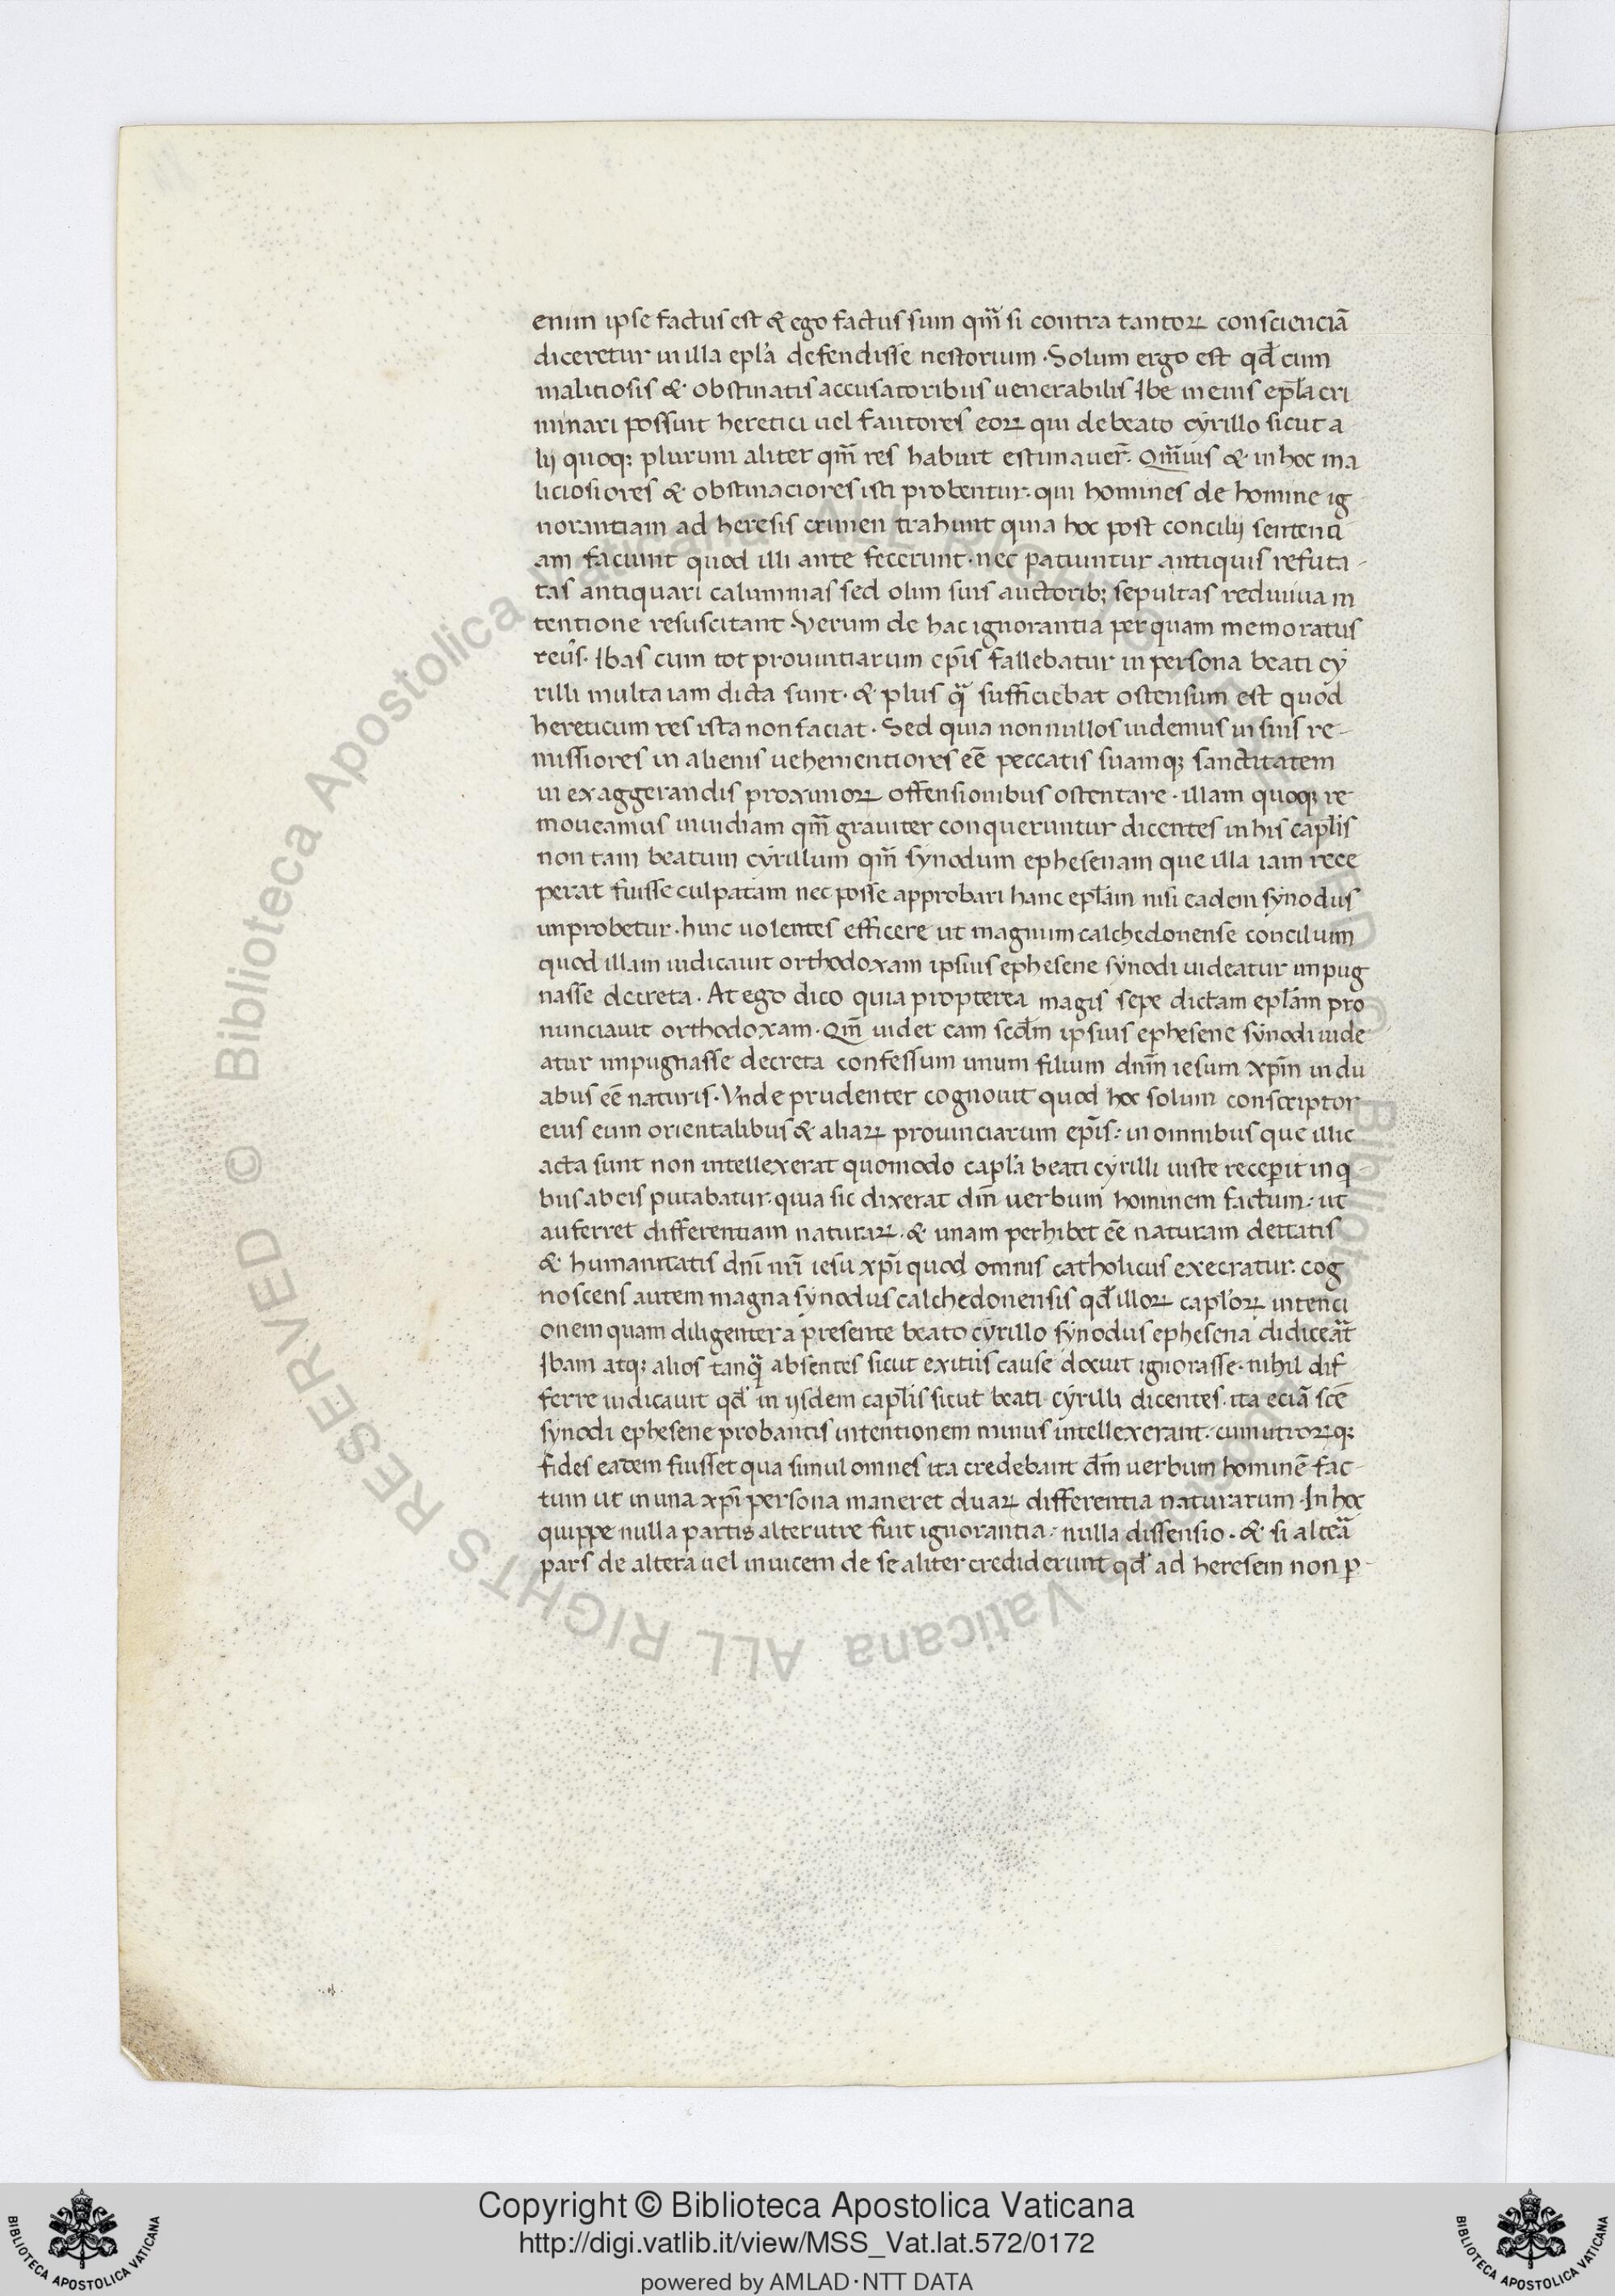 enim ipse factus est & ego factus sum qm̃ si contra tantoꝝ conscienciã
diceretur in illa epl̃a defendisse nestorium · Solum ergo est qđ cum
maliciosis & obstinatis accusatoribus uenerabilis Ibe in eius epl̃a cri
minari possint heretici uel fautores eoꝝ qui de beato cyrillo sicut a
lij quoq; plurimi aliter qm̃ res habuit estimauer̃. Qm̃uis & in hoc ma
liciosiores & obstinaciores isti probentur. qui homines de homine ig
norantiam ad heresis crimen trahunt quia hoc post concilij sentenci
am faciunt quod illi ante fecerunt · nec patiuntur antiquis refuta-
tas antiquari calumnias sed olim suis auctorib; sepultas rediuiua in
tentione resuscitant. Verum de hac ignorantia per quam memoratus
reũs. Ibas cum tot prouintiarum ep̃is fallebatur in persona beati cy
rilli multa iam dicta sunt. & plus q̃ sufficiebat ostensum est quod
hereticum res ista non faciat. Sed quia nonnullos uidemus in suis re-
missiores in alienis uehementiores eẽ peccatis suamq; sanctitatem
in exaggerandis proximoꝝ offensionibus ostentare. illam quoq; re
moueamus inuidiam qm̃ grauiter conqueruntur dicentes in his capl̃is
non tam beatum cyrillum qm̃ synodum ephesenam que illa iam rece
perat fuisse culpatam nec posse approbari hanc epl̃am nisi eadem synodus
improbetur. hinc uolentes efficere ut magnum calchedonense concilium
quod illam iudicauit orthodoxam ipsius ephesene synodi uideatur impug
nasse decreta. At ego dico quia propterea magis sepe dictam epl̃am pro
nunciauit orthodoxam. Qm̃ uidet eam scđm ipsius ephesene synodi uide
atur impugnasse decreta confessum unum filium dnm̃ iesum xp̃m in du
abus eẽ naturis. Vnde prudenter cognouit quod hoc solum conscriptor
eius cum orientalibus & aliaꝝ prouinciarum ep̃is: in omnibus que illic
acta sunt non intellexerat quomodo capl̃a beati cyrilli iuste receperit in q
bus ab eis putabatur. quia sic dixerat dm̃ uerbum hominem factum: ut
auferret differentiam naturaꝝ. & unam perhibet eẽ naturam deitatis
& humanitatis dnĩ nr̃i iesu xp̃i quod omnis catholicus execratur. cog
noscens autem magna synodus calchedonensis qđ illoꝝ capl̃oꝝ intenci
onem quam diligenter a presente beato cyrillo synodus ephesena didiceãt
Ibam atq; alios tanq̃ absentes sicut exitus cause docuit ignorasse. nihil dif
ferre iudicauit qđ in ijsdem capl̃is sicut beati cyrilli dicentes. ita eciã scẽ
synodi ephesene probantis intentionem minus intellexerant. cum utroꝝq;
fides eadem fuisset qua simul omnes ita credebant dm̃ uerbum hominẽ fac-
tum ut in una xp̃i persona maneret duaꝝ differentia naturarum. In hoc
quippe nulla partis alterutre fuit ignorantia: nulla dissensio. & si alteã
pars de altera uel inuicem de se aliter crediderunt qđ ad heresem non ꝑ-
Copyright © Biblioteca Apostolica Vaticana
http://digi.vatlib.it/view/MSS_Vat.lat.572/0172
powered by AMLAD·NTT DATA